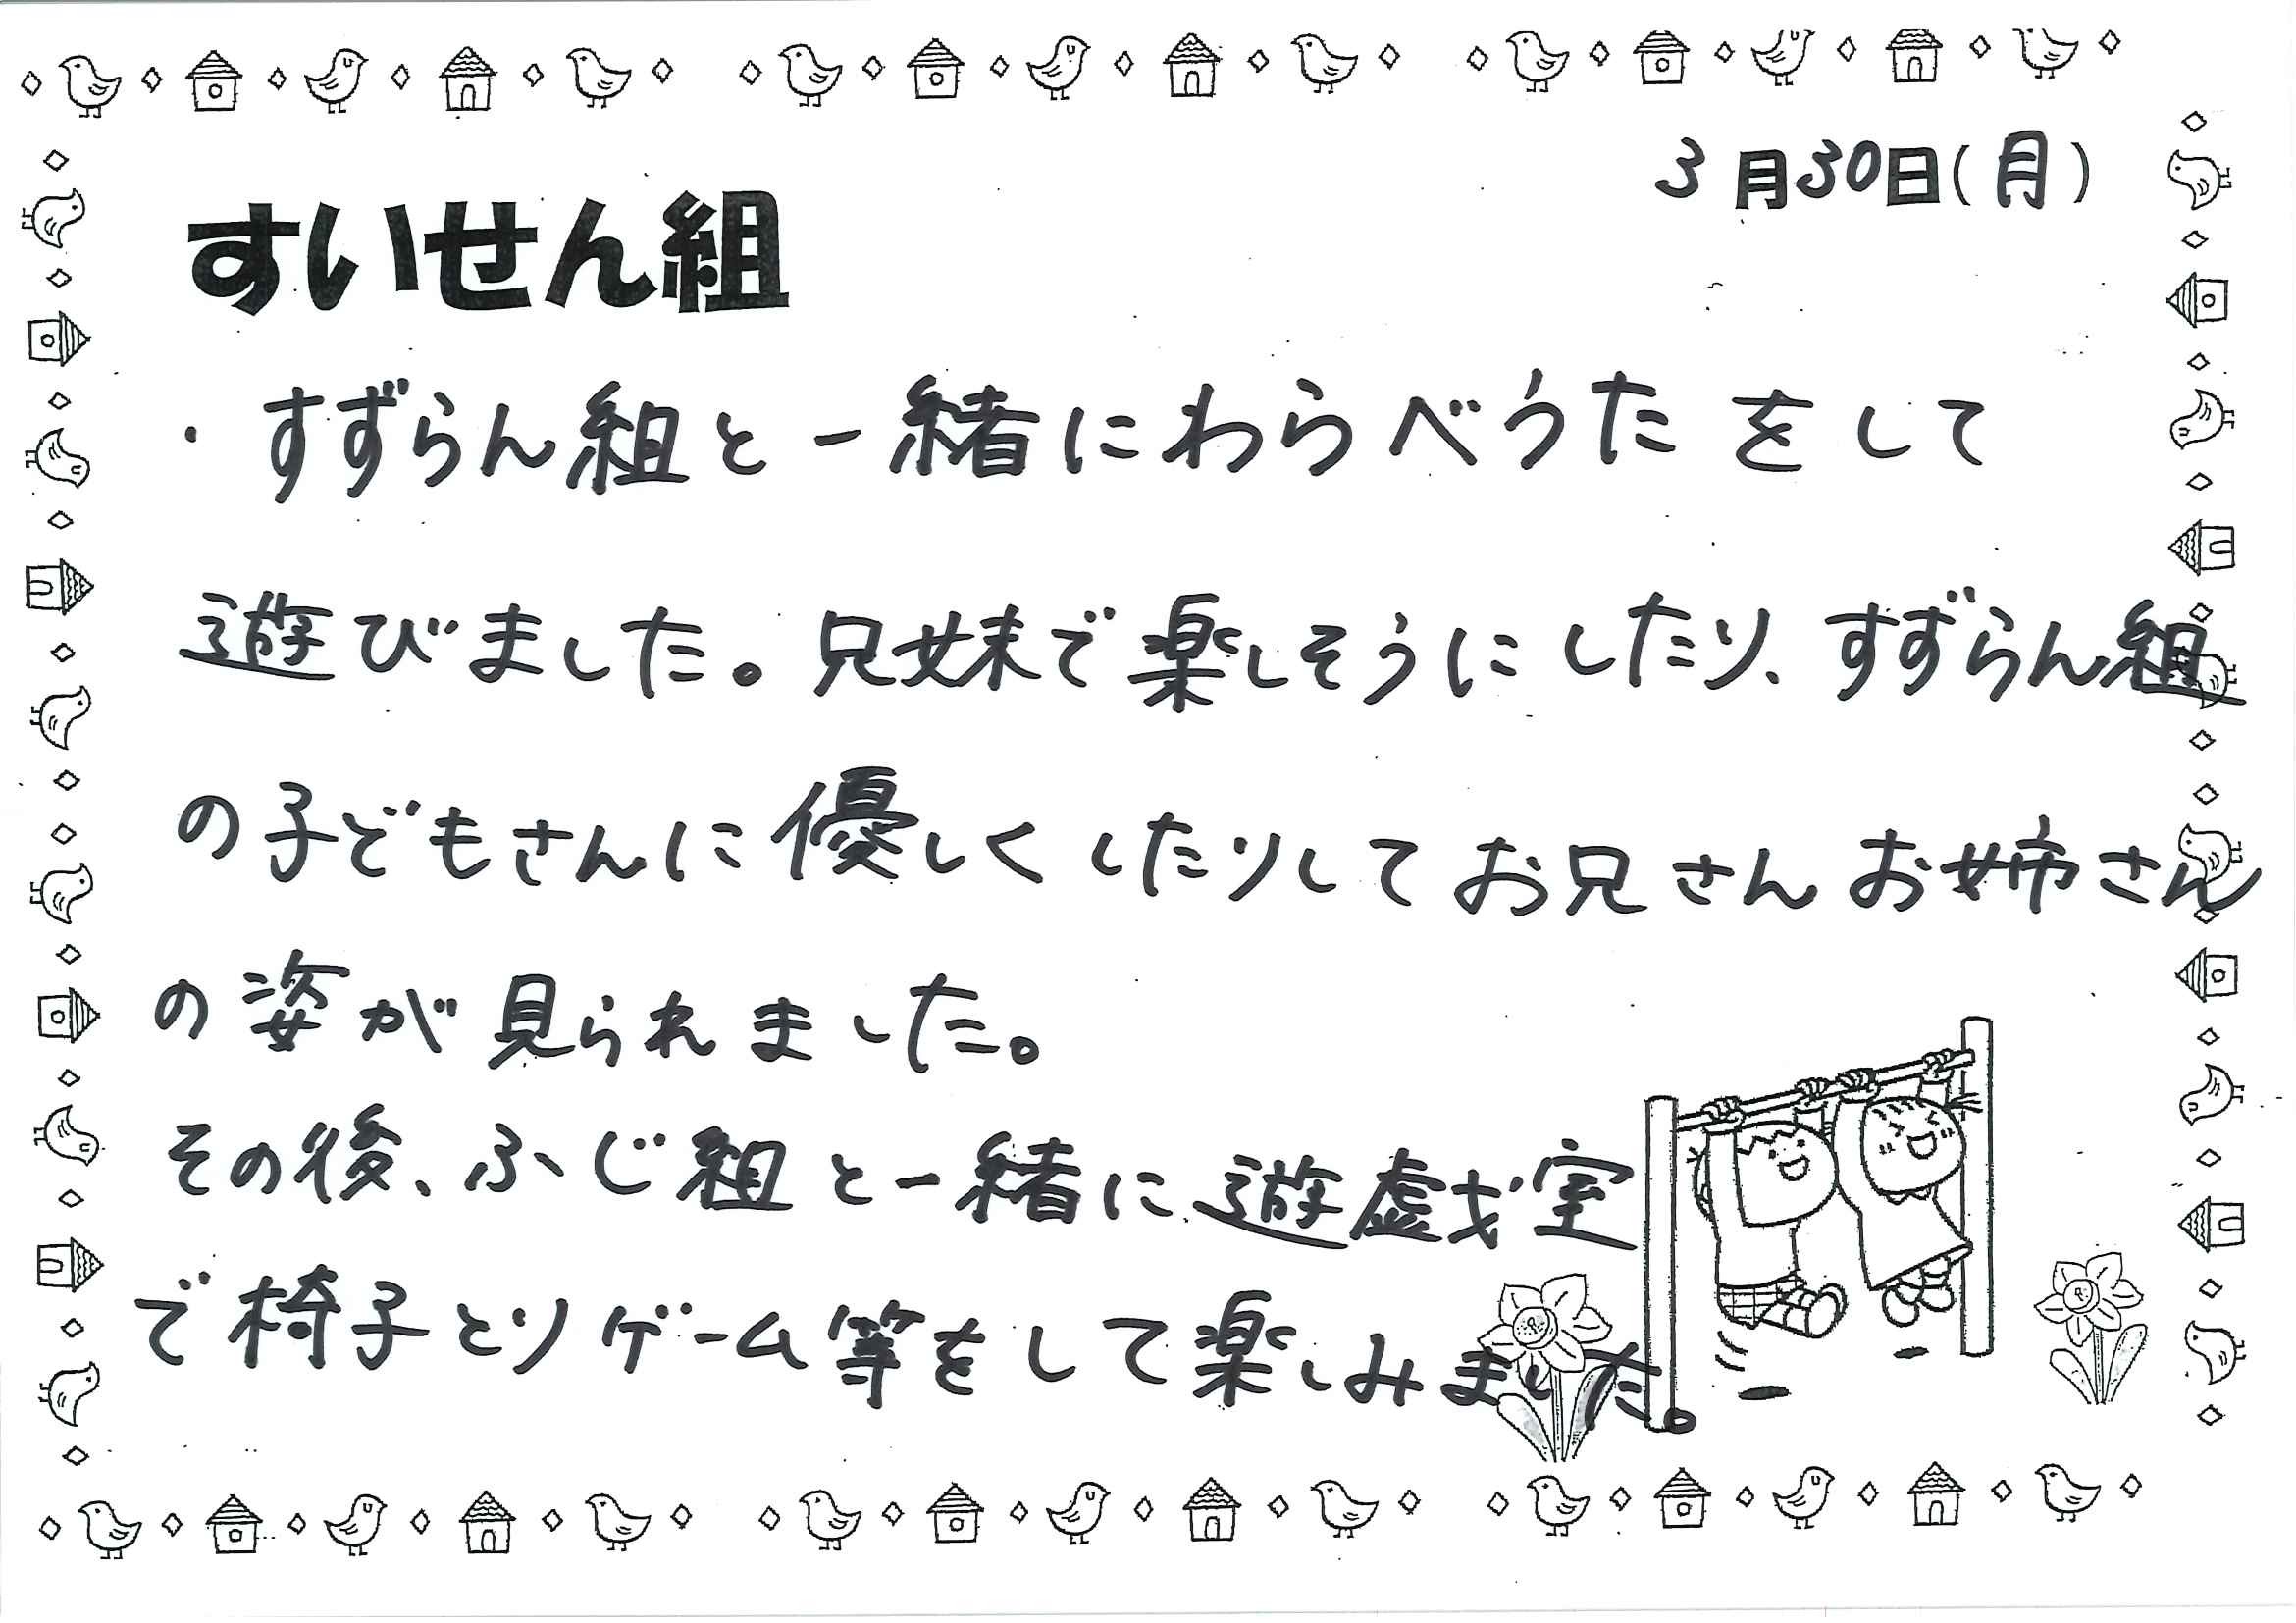 3月30日(月)
すいせん組
・すずらん組と一緒にわらべうたをして
遊びました。兄妹で楽しそうにしたり、すずらん組
の子どもさんに優しくしたりしてお兄さんお姉さん
の姿が見られました。
その後、ふじ組と一緒に遊戯室
で椅子とりゲーム等をして楽しみました。